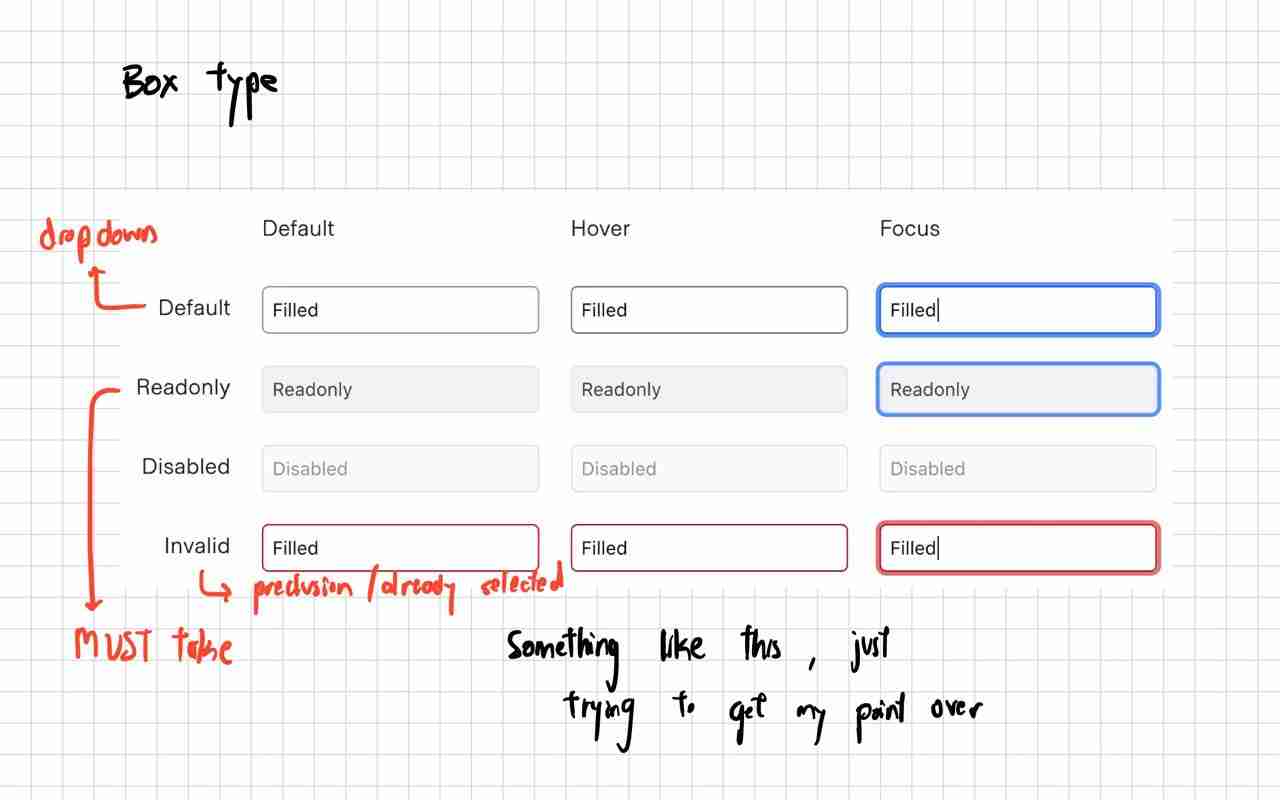 Box type
dropdowns
Default Hover Focus
Default Filled Filled Filled
Readonly Readonly Readonly Readonly
Disabled Disabled Disabled Disabled
Invalid Filled Filled Filled
preclusion / already selected
MUST take
Something like this, just
trying to get my point over